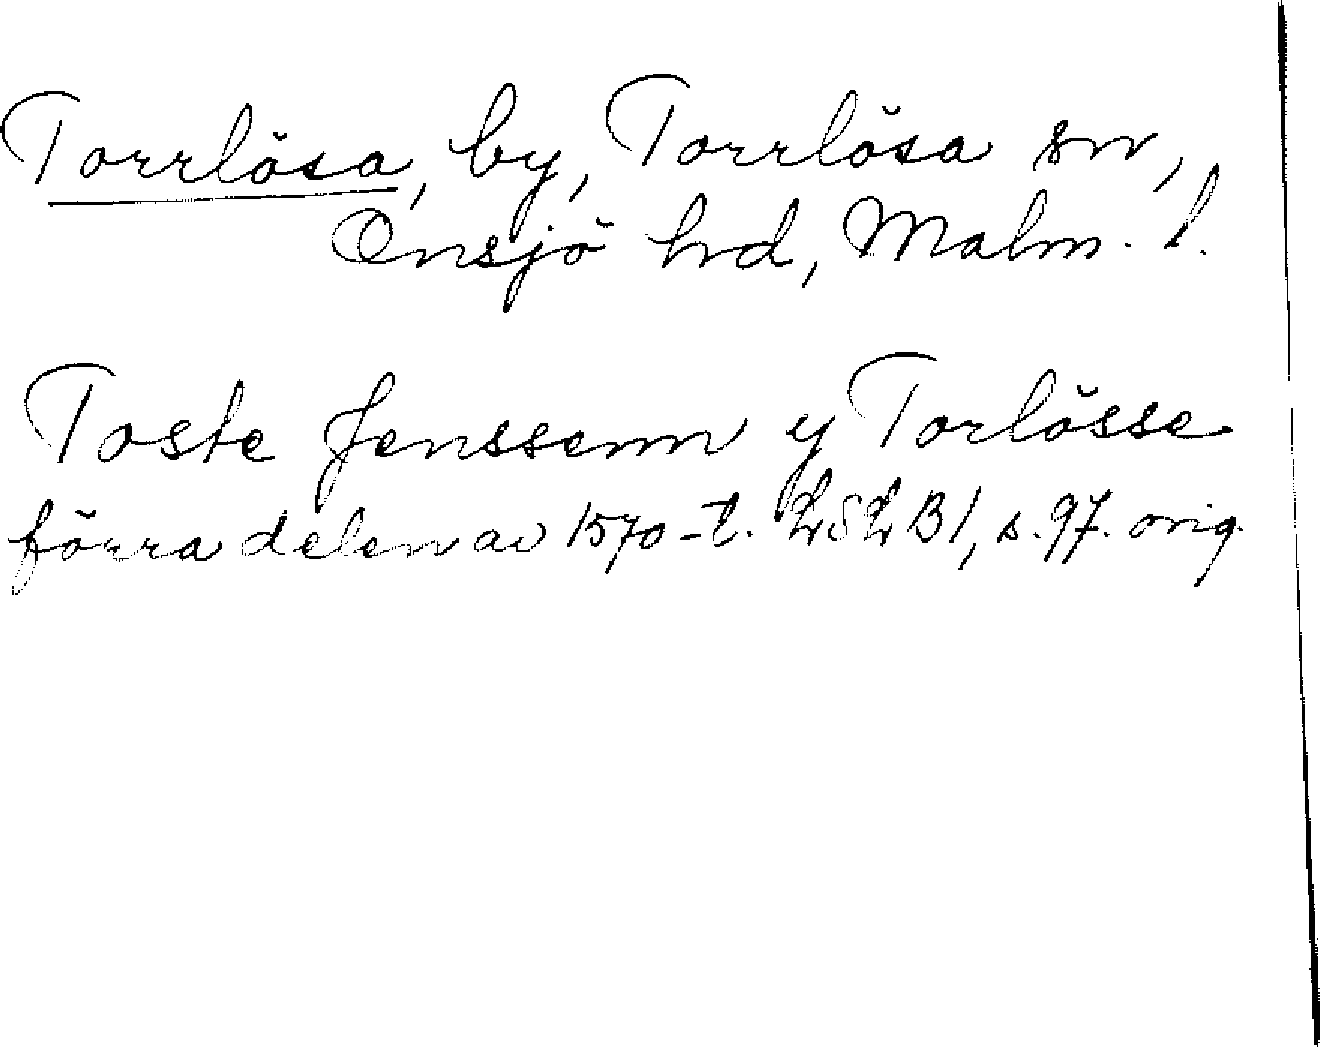 Torrlösa, by, Torrlösa sn,
Onsjö hd, Malm. l.
Toste Jenssenn y Torlösse
förra delen av 1570-t. LSLB1, s. 97. orig.